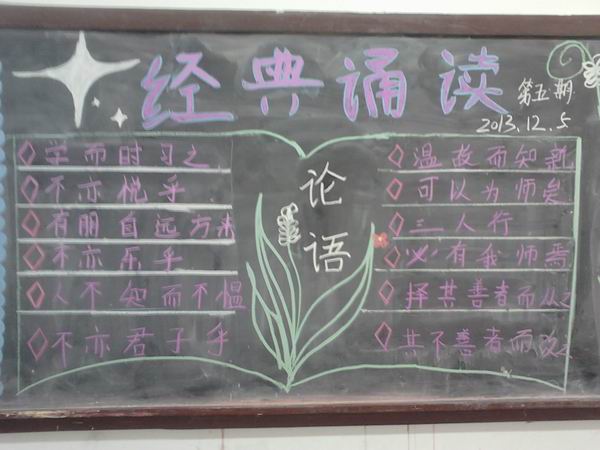 经典诵读
第五期
2013.12.5
学而时习之
不亦悦乎
有朋自远方来
不亦乐乎
人不知而不愠
不亦君子乎
论语
温故而知新
可以为师矣
三人行
必有我师焉
择其善者而从之
其不善者而改之